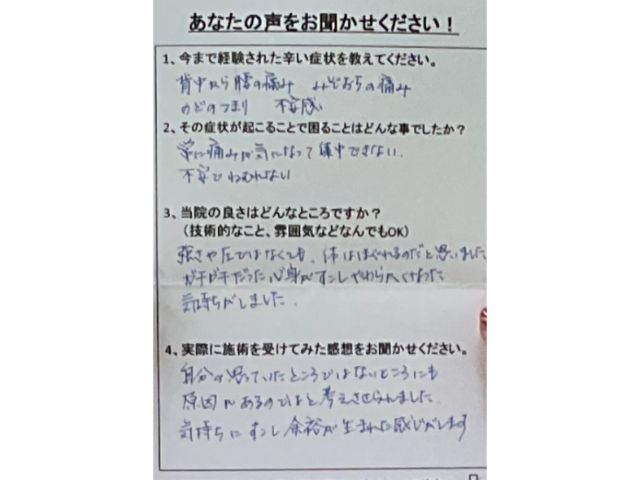 あなたの声をお聞かせください！
1、今まで経験された辛い症状を教えてください。
背中から腰の痛み みぞおちの痛み
のどのつまり 不安感
2、その症状が起こることで困ることはどんな事でしたか？
常に痛みが気になって集中できない．
不安でねむれない
3、当院の良さはどんなところですか？
(技術的なこと、雰囲気などなんでもOK)
強さや圧ではなくても、体はほぐれるのだと思いました
ガチガチだった心身がすこしやわらかくなった
気持ちがしました．
4、実際に施術を受けてみた感想をお聞かせください。
自分の思っていたところではないところにも
原因があるのではと考えさせられました．
気持ちにすこし余裕が生まれた感じがします